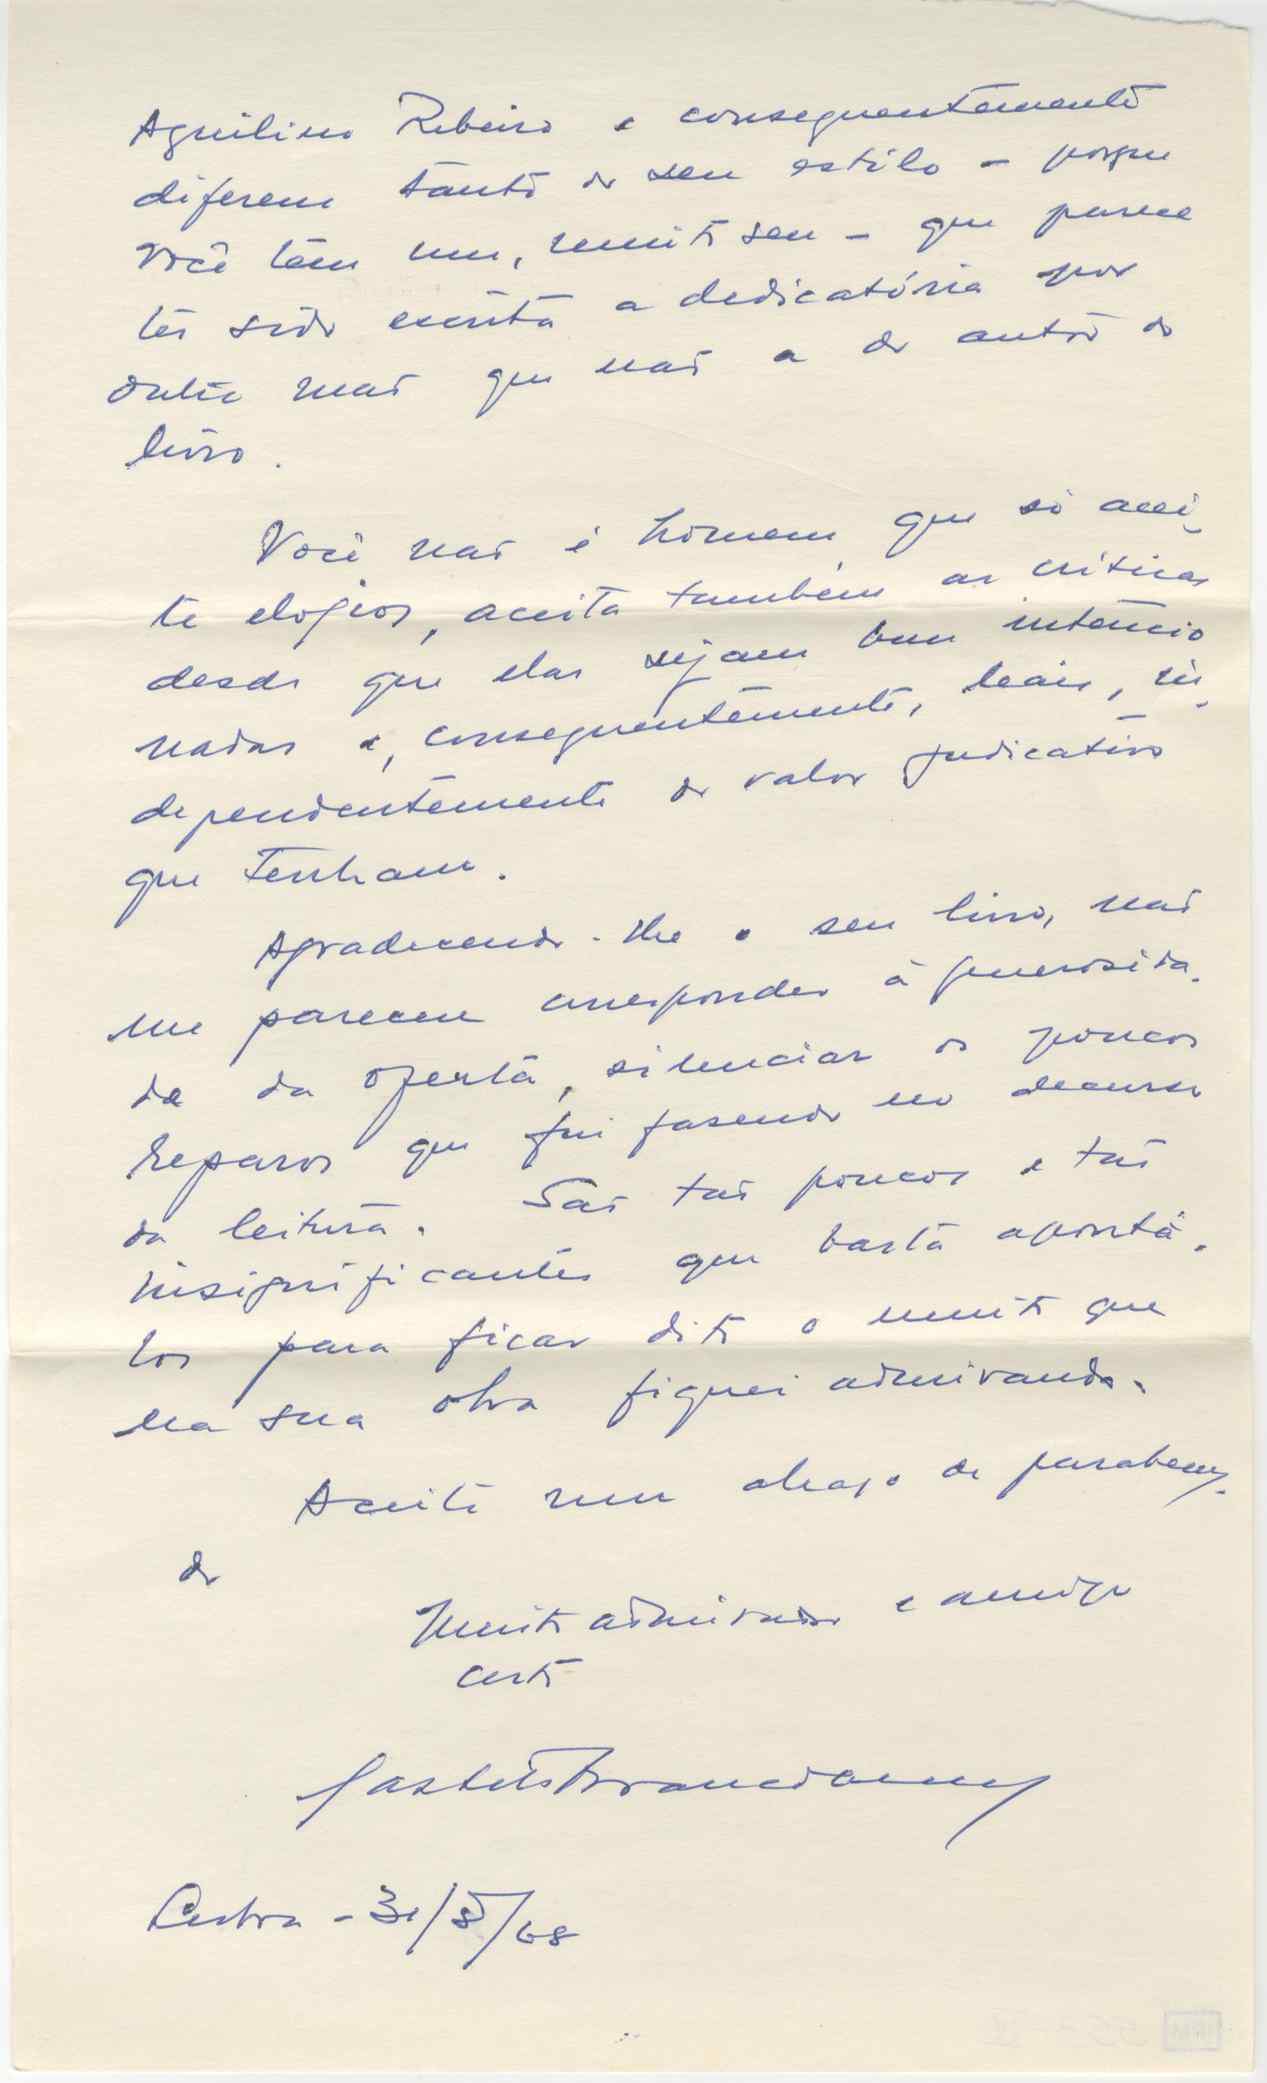 Aquilino Ribeiro e consequentemente
diferem tanto do seu estilo - porque
Você tem um, muito seu - que parece
ter sido escrita a dedicatória por
outra mão que não a do autor do
livro.
Você não é homem que só acei-
te elogios, aceita também as críticas
desde que elas sejam bem intencio
nadas e, consequentemente, leais, in-
dependentemente do valor judicativo
que tenham.
Agradecendo-lhe o seu livro, não
me pareceu corresponder à generosida-
de da oferta, silenciar os poucos
reparos que fui fasendo no decurso
da leitura. São tão poucos e tão
insignificantes que basta apontá-
los para ficar dito o muito que
na sua obra fiquei admirando.
Aceite um abraço de parabens,
do
Muito admirador e amigo
certo
Lisboa - 31/8/68